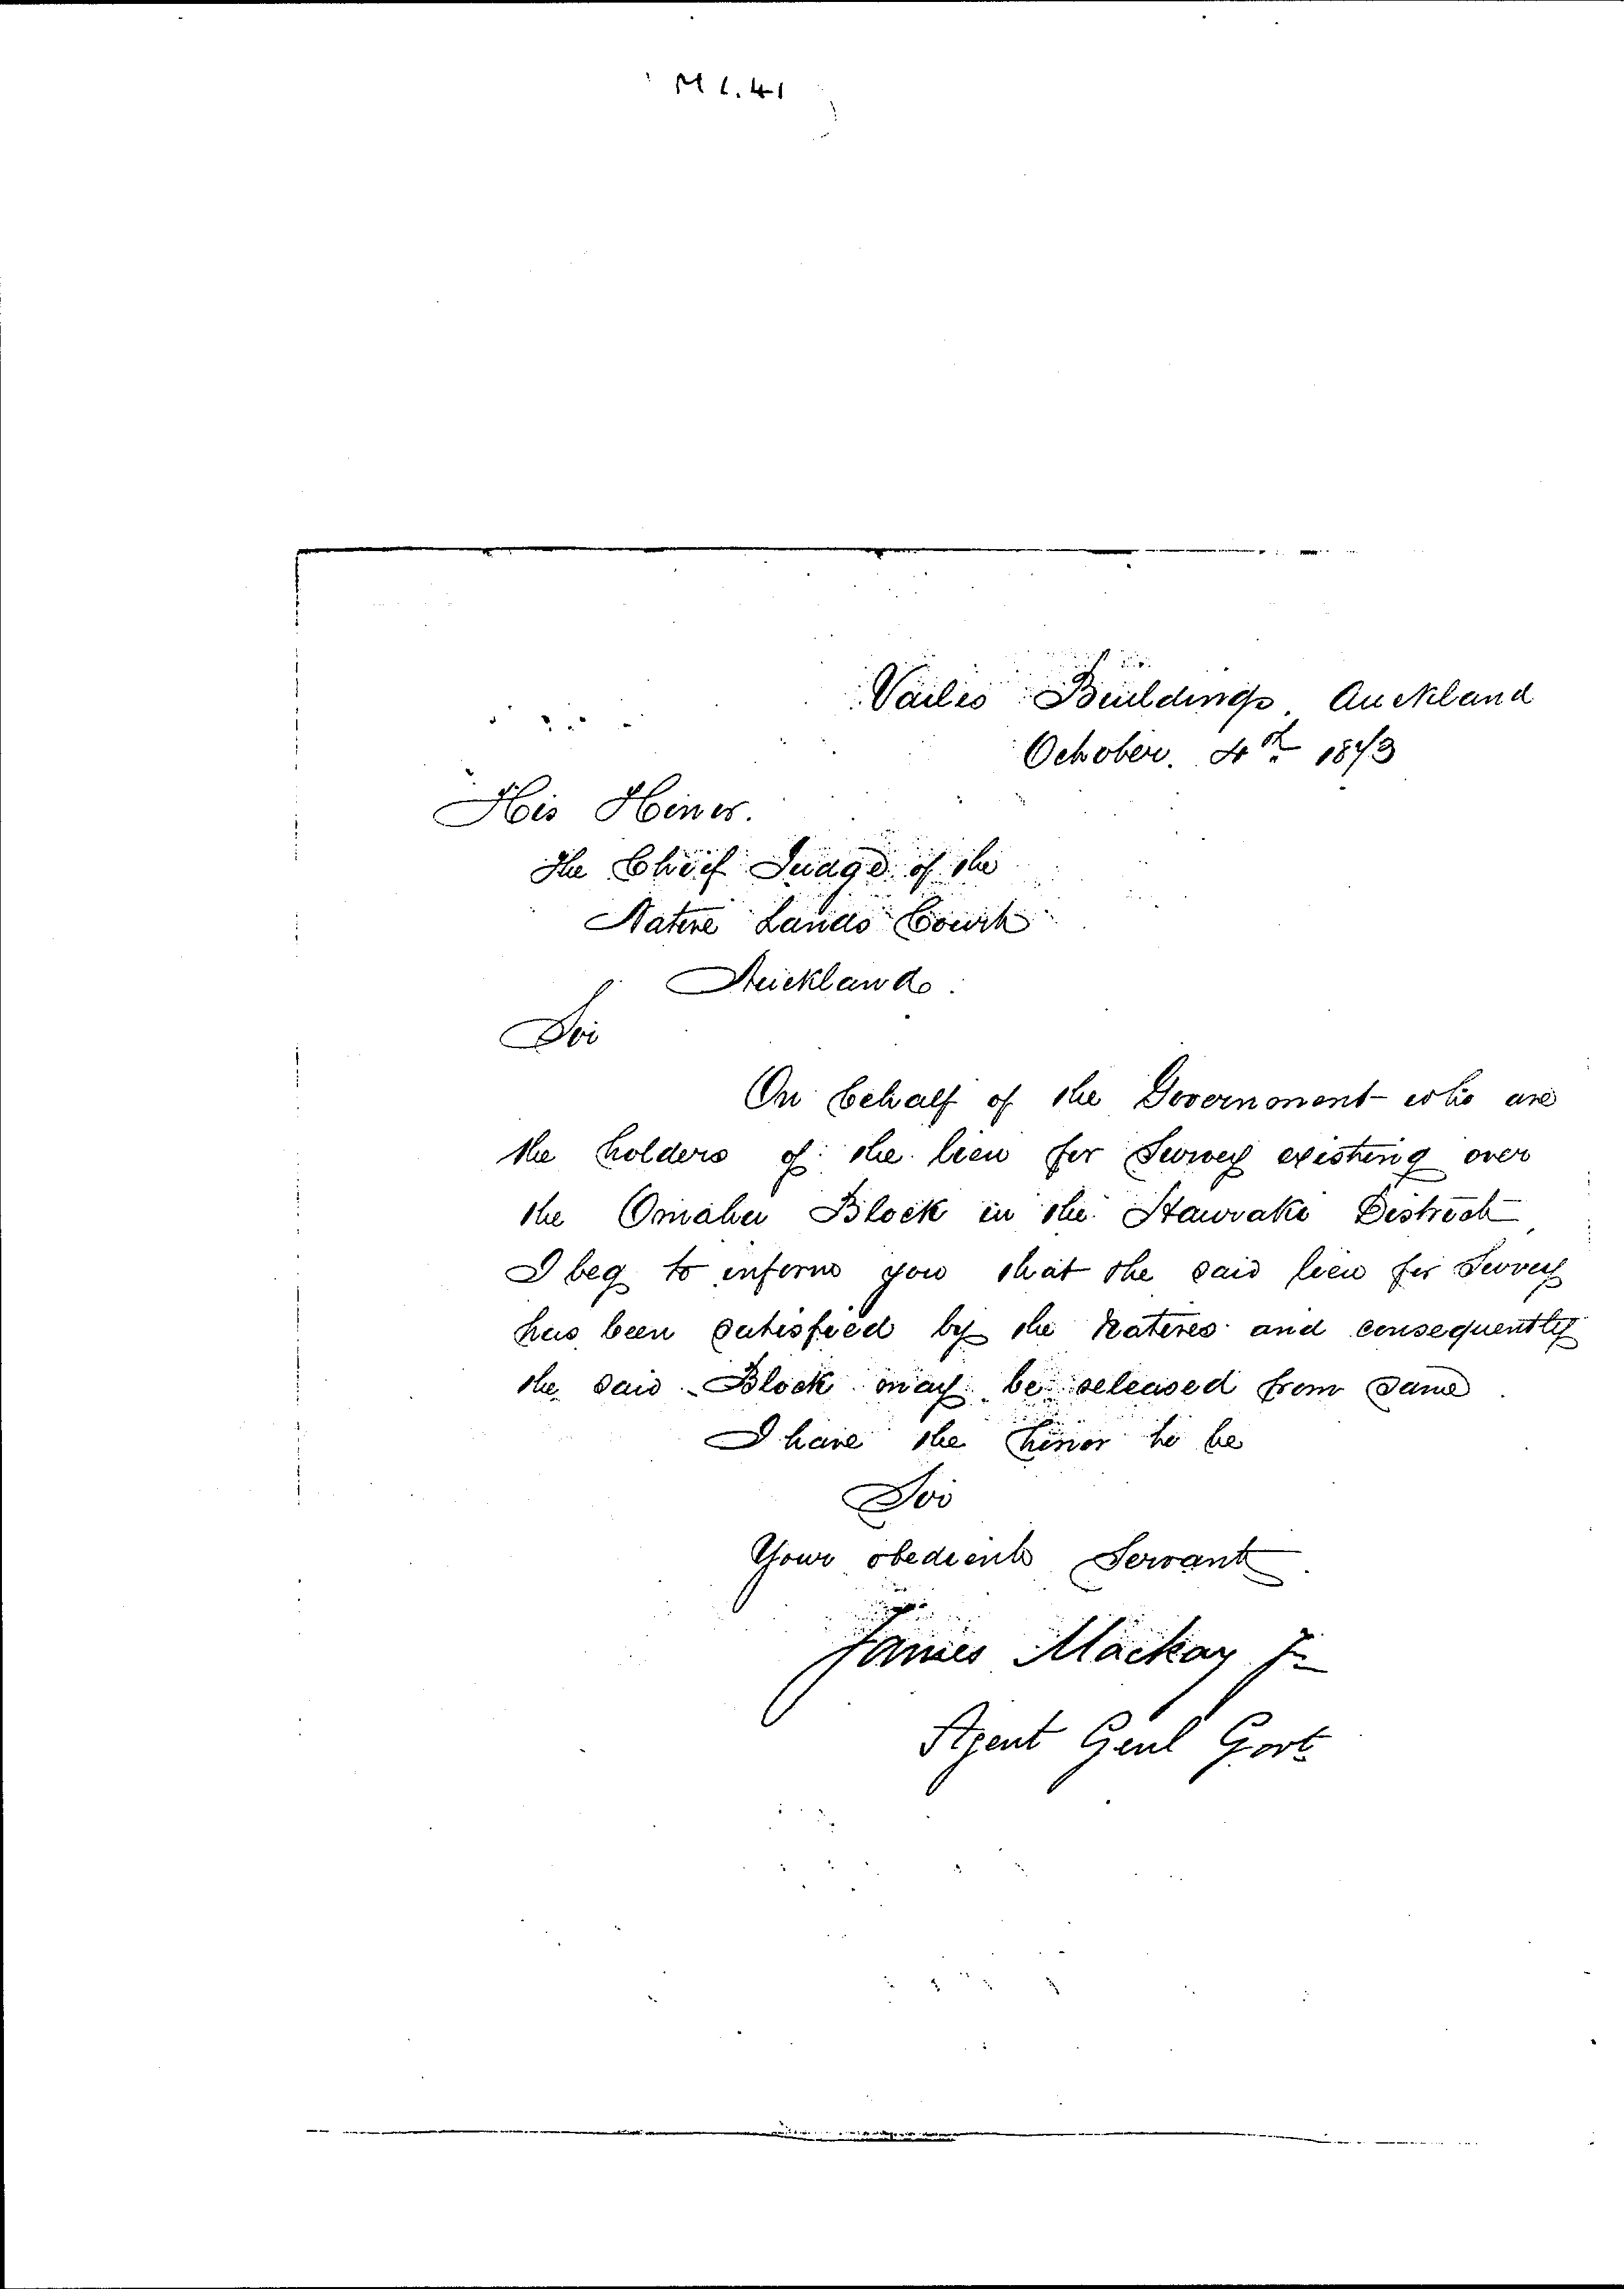 M 6.41
Vailes Buildings Auckland
October. 4th 1873
His Honor.
The Chief Judge of the
Native Lands Court
Auckland.
Sir
On behalf of the Government who are
the holders of the lien for Survey existing over
the Omahu Block in the Hauraki District
I beg to inform you that the said lien for Survey
has been satisfied by the Natives and consequently
the said Block may be released from same
I have the honor to be
Sir
Your obedient Servant
James Mackay Jr
Agent Genl Govt